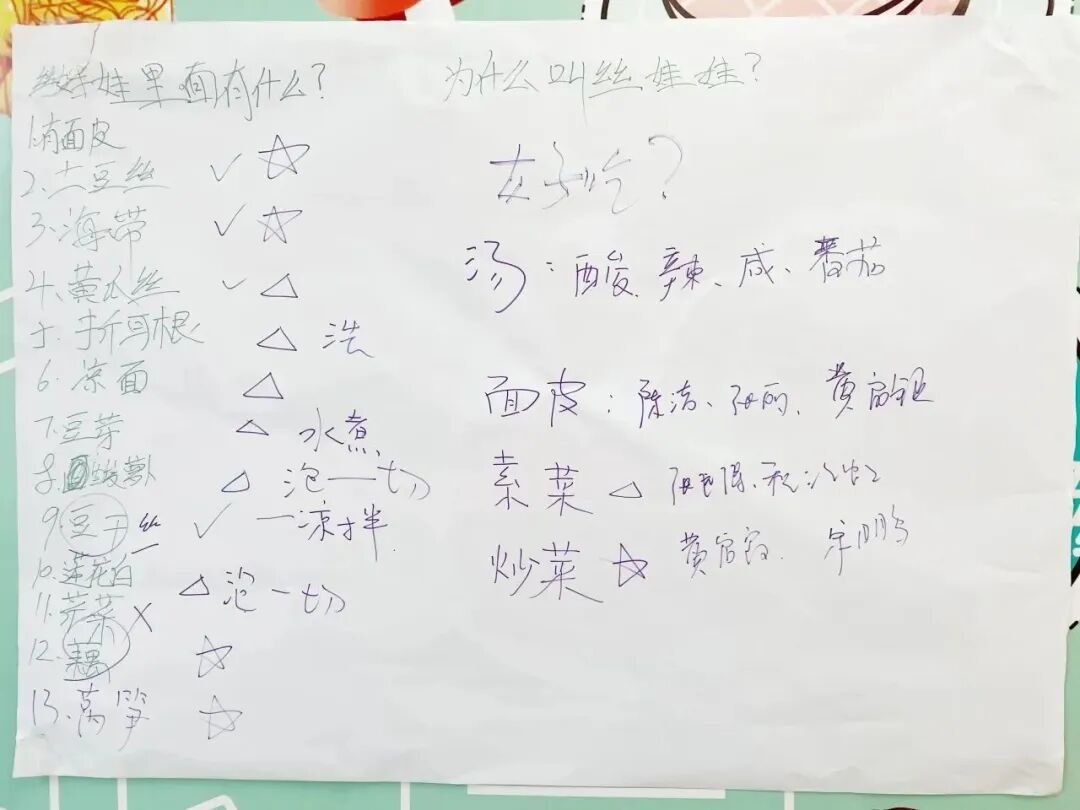 丝娃娃里面有什么?
1.有面皮
2、土豆丝 ✓ ☆
3、海带 ✓ ☆
4、黄瓜丝 ✓ △
5、折耳根 △ 洗
6、凉面 △
7、豆芽 △ 水煮
8、酸萝卜 △ 泡一切
9、豆干丝 ✓ 一凉拌
10、莲花白 △ 泡一切
11、芹菜 X
12、藕 ☆
13、莴笋 ☆
为什么叫丝娃娃?
好吃?
汤:酸、辣、咸、番茄
面皮:陈洁、 黄
素菜 △
炒菜 ☆ 黄